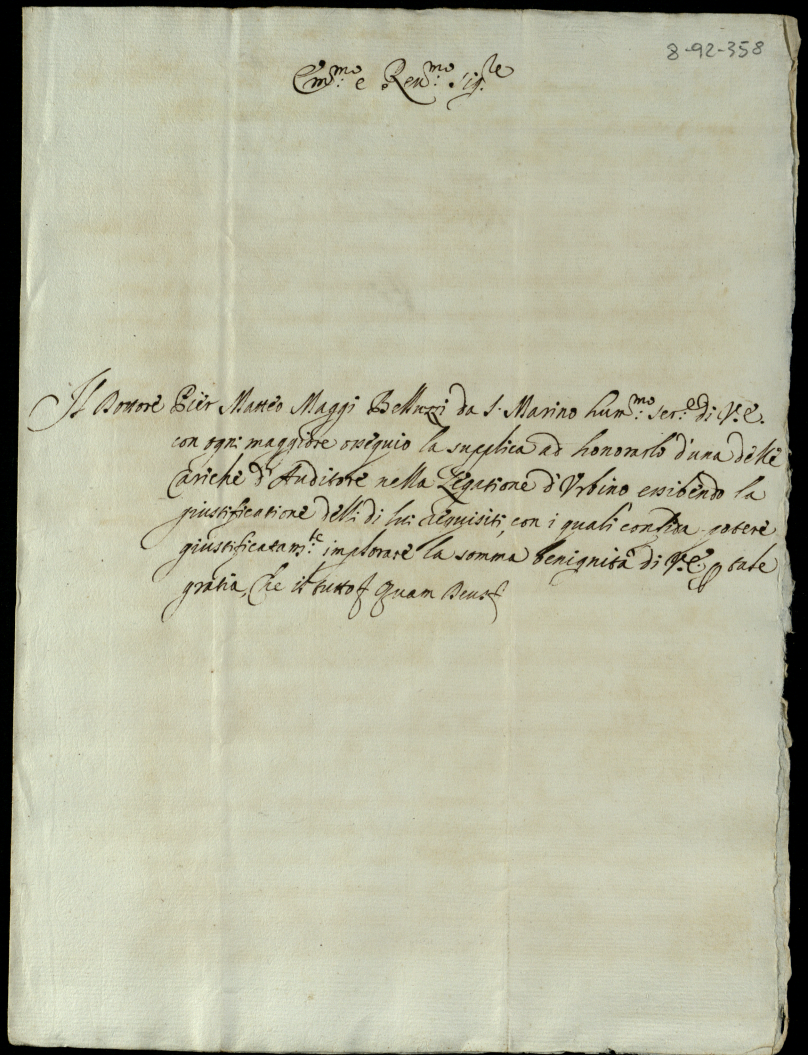 8-92-358
Em:mo e Reu:mo Sig:re
Il Dottore Pier Matteo Maggi Belluzzi da S. Marino hum:mo ser:e di V.E.
con ogni maggiore ossequio la supplica ad honorarlo d'una delle
Cariche d'Auditore nella Legatione d'Urbino essibendo la
giustificatione delli di lui requisiti, con i quali confida potere
giustificatam:te implorare la somma benignità di V.E. p tale
gratia, Che il tutto Quam Deus